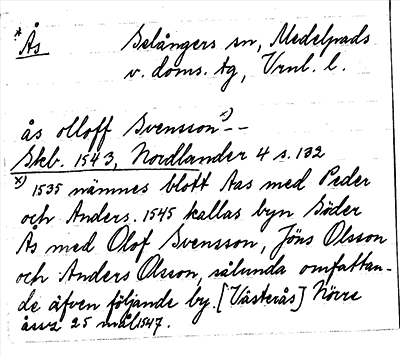 * Ås Selångers sn, Medelpads
v. doms. tg, Vrnl. l.
ås olloff Svensson x) --
Skb. 1543, Nordlander 4 s. 132
x) 1535 nämnes blott Aas med Peder
och Anders. 1545 kallas byn Söder
Ås med Olof Svensson, Jöns Olsson
och Anders Olsson, sålunda omfattan-
de äfven följande by. [Västerås] Nörre
25 mål 1547.